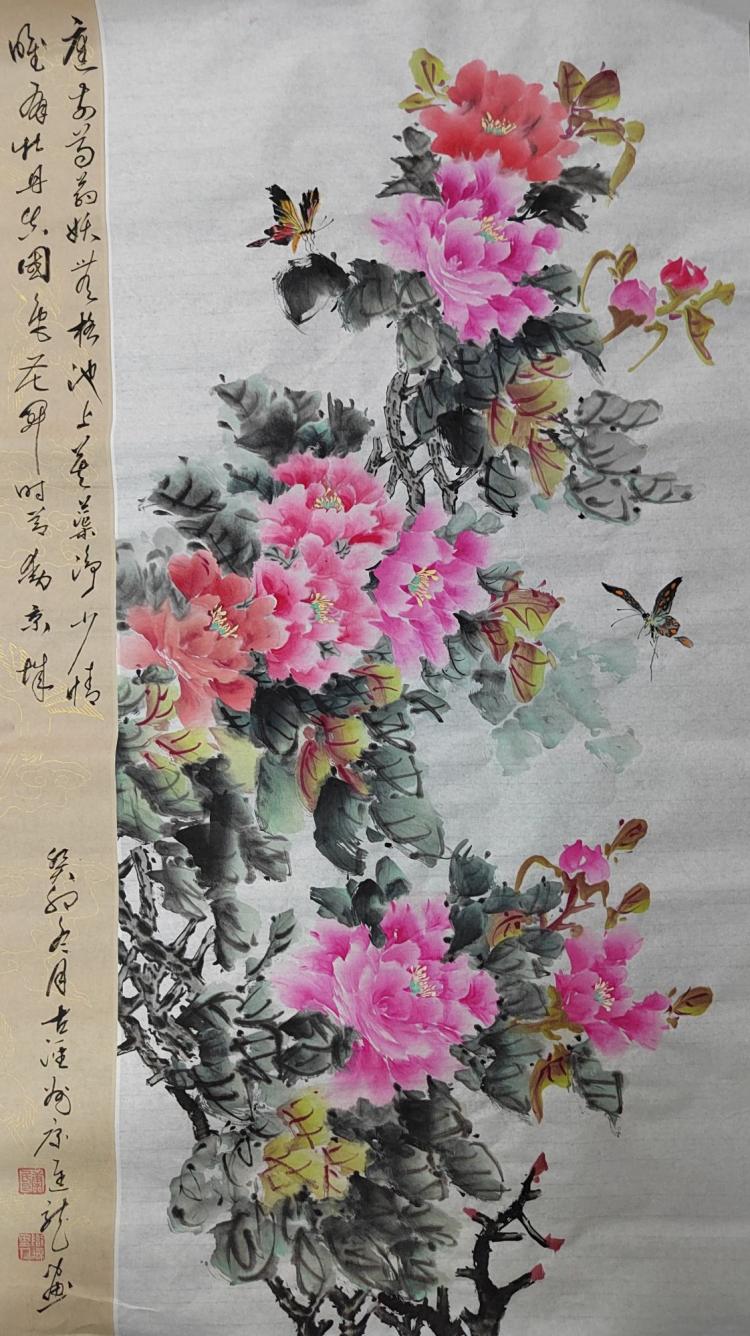 庭前芍药妖无格池上芙蕖净少情
唯有牡丹真国色花开时节动京城
癸卯冬月古涯州康廷龙画